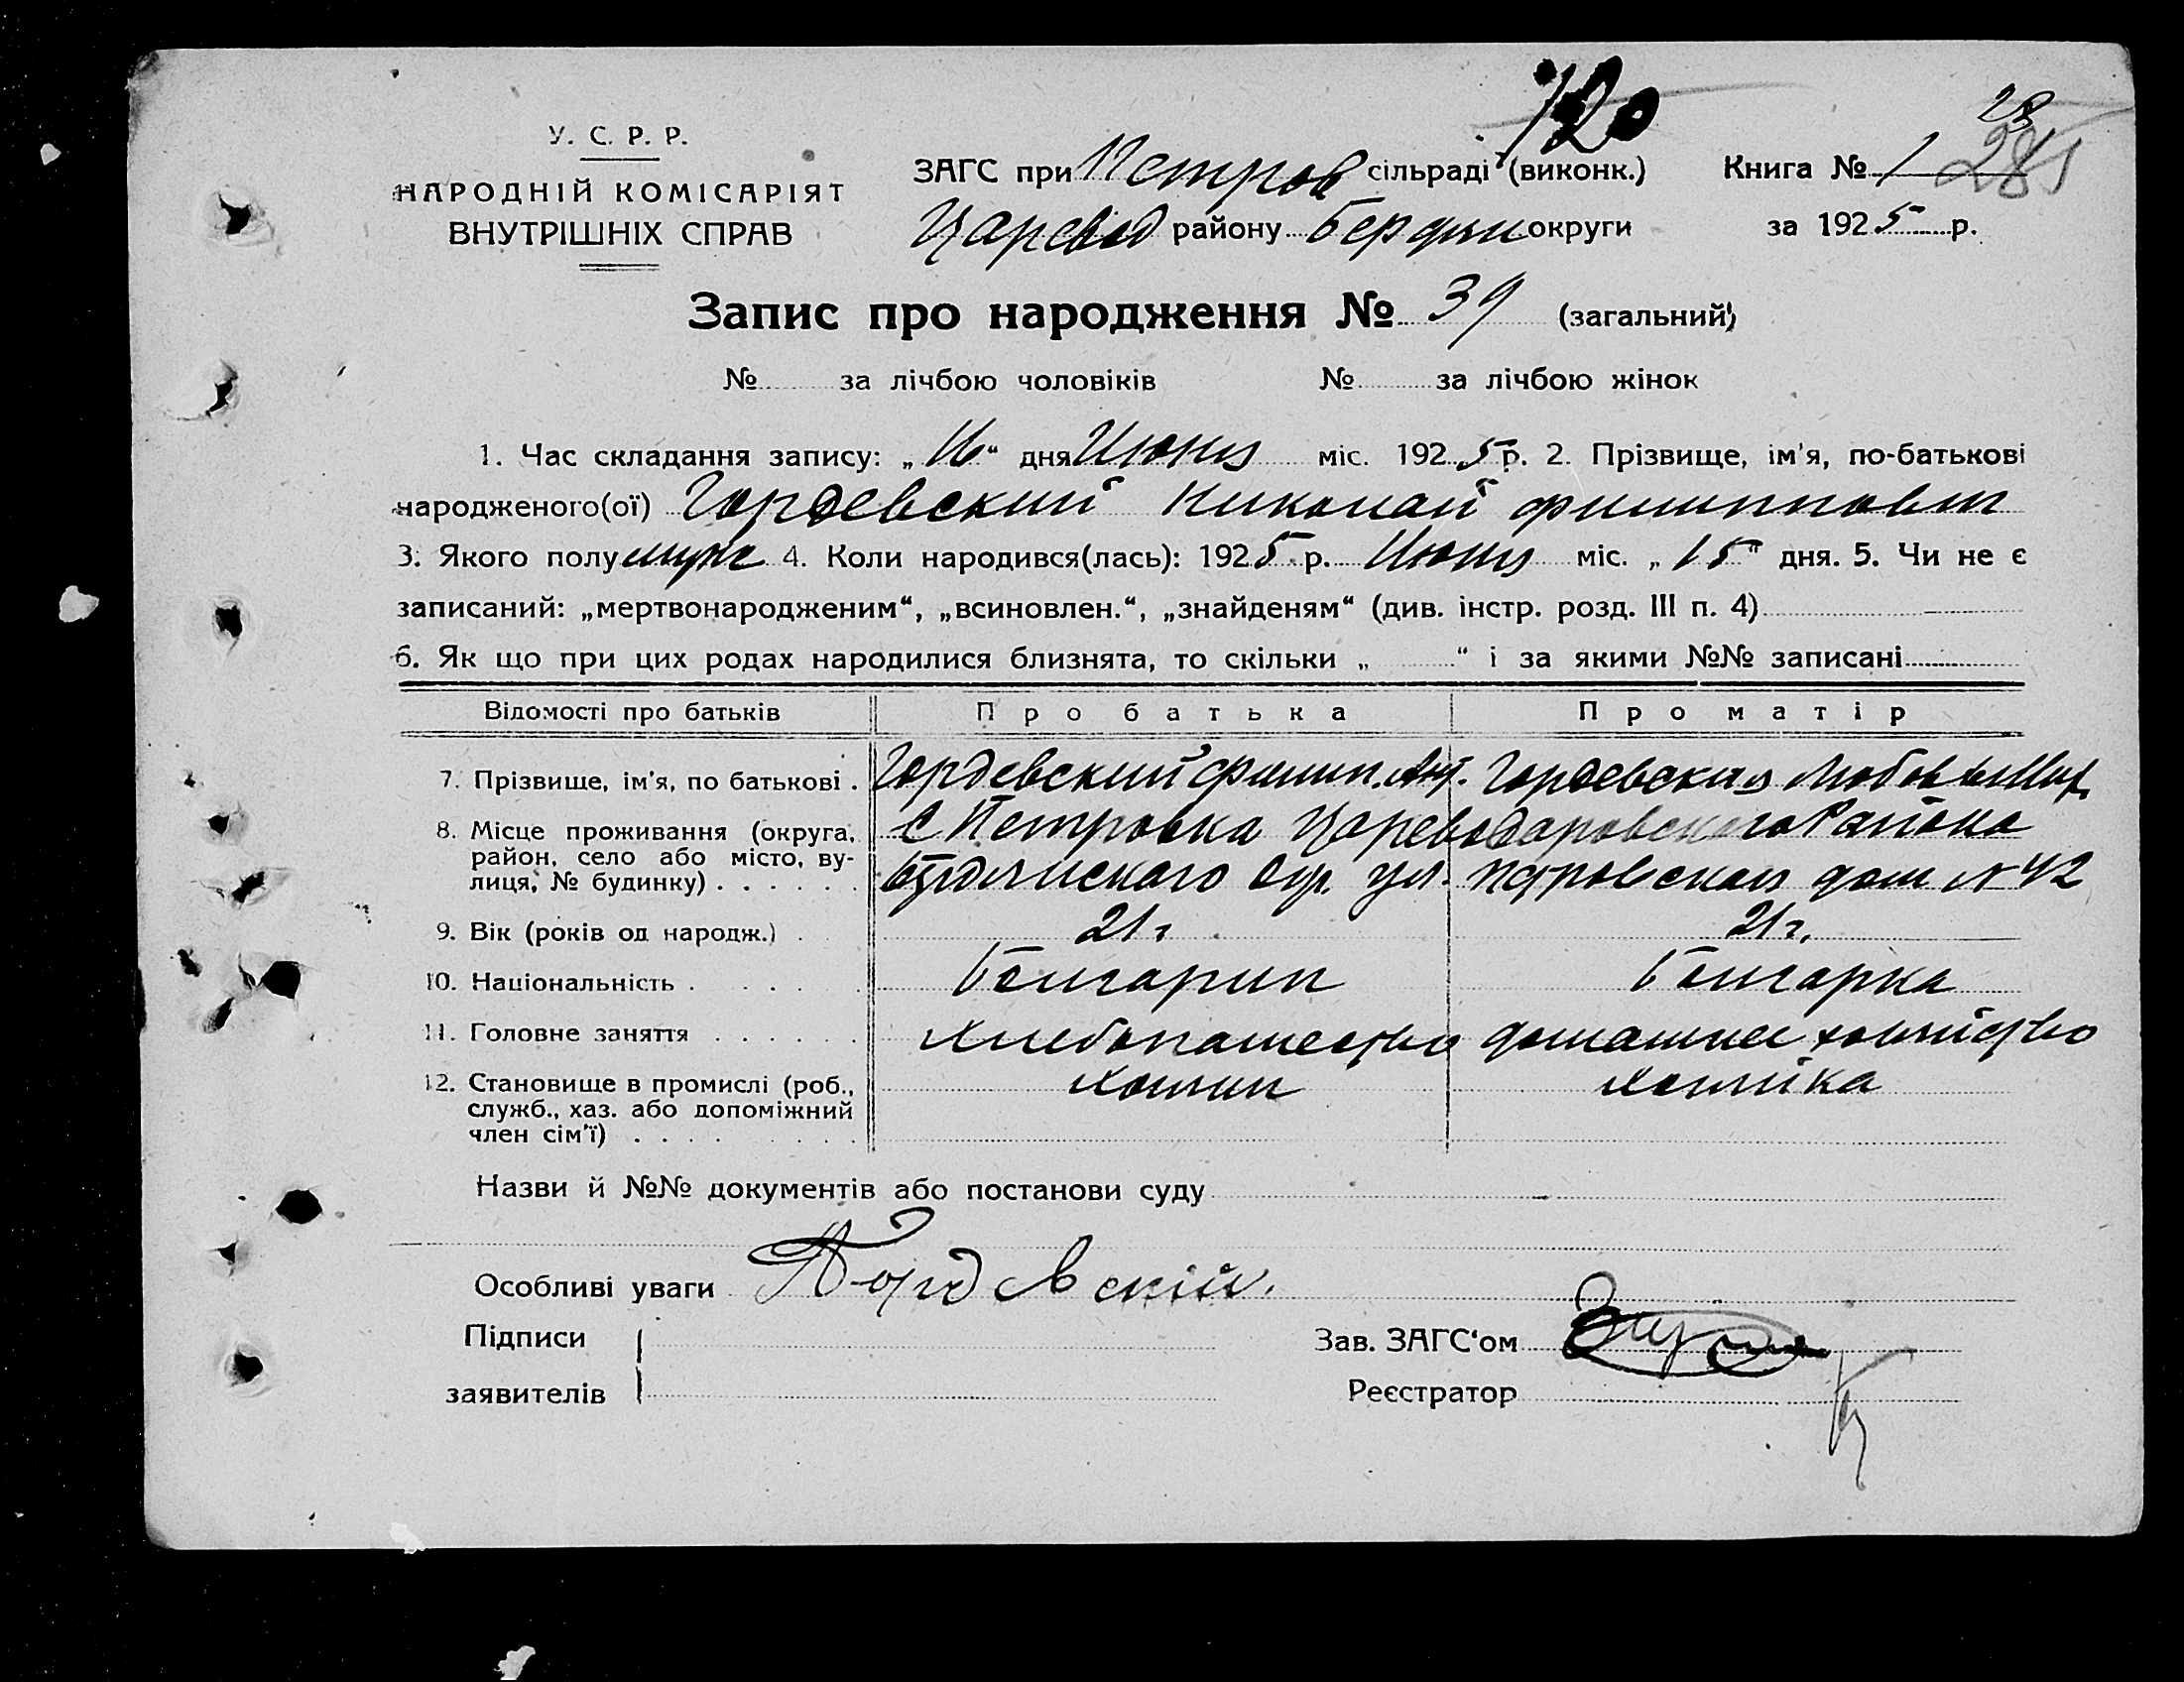 120
23
У. С. Р. Р.
НАРОДНІЙ КОМІСАРІЯТ
ВНУТРІШНІХ СПРАВ
ЗАГС при Петров сільраді (виконк.) Книга № 1
Царевод району Бердян округи за 1925 р.
Запис про народження № 39 (загальний)
№ за лічбою чоловіків № за лічбою жінок
1. Час складання запису: „16“ дня Июня міс. 1925 р. 2. Прізвище, ім'я, по-батькові
народженого(ої) Гордевский Николай Филиппович
3. Якого полу муж 4. Коли народився(лась): 1925 р. Июня міс. „15“ дня. 5. Чи не є
записаний: „мертвонародженим“, „всиновлен.“, „знайденям“ (див. інстр. розд. III п. 4)
6. Як що при цих родах народилися близнята, то скільки „ “ і за якими №№ записані
Відомості про батьків Про батька Про матір
7. Прізвище, ім'я, по батькові . Гордевский Филип. Ант. Гордевская Любовь
8. Місце проживання (округа, район, село або місто, вулиця, № будинку) С Петровка Цареводаровского Района
Бердянскаго Окр. ул. Петровская дом № 42
9. Вік (років од народж.) 21 г 21 г.
10. Національність Болгарин Болгарка
11. Головне заняття Хлебопашество домашнее хозяйство
12. Становище в промислі (роб., служб., хаз. або допоміжний член сім'ї) Хозяин Хозяйка
Назви й №№ документів або постанови суду
Особливі уваги Гордевскій.
Підписи
заявителів
Зав. ЗАГС'ом
Реєстратор